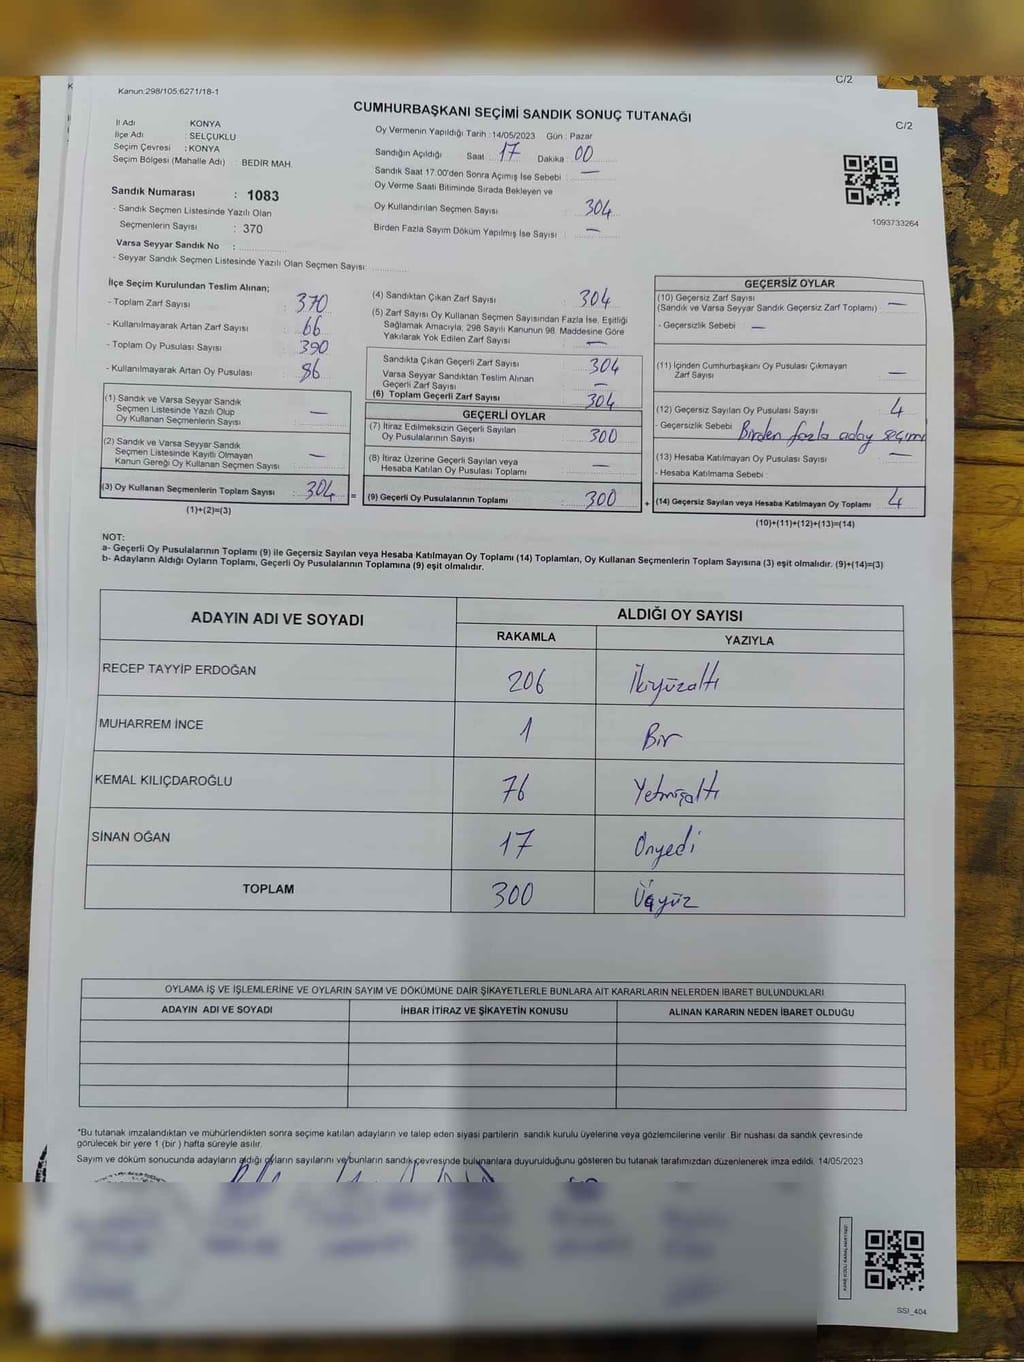 C/2
Kanun:298/105;6271/18-1
CUMHURBAŞKANI SEÇİMİ SANDIK SONUÇ TUTANAĞI
C/2
İl Adı KONYA
İlçe Adı : SELÇUKLU
Seçim Çevresi : KONYA
Seçim Bölgesi (Mahalle Adı) : BEDIR MAH.
Sandık Numarası : 1083
- Sandık Seçmen Listesinde Yazılı Olan
Seçmenlerin Sayısı : 370
Varsa Seyyar Sandık No :
- Seyyar Sandık Seçmen Listesinde Yazılı Olan Seçmen Sayısı:
Oy Vermenin Yapıldığı Tarih :14/05/2023 Gün : Pazar
Sandığın Açıldığı Saat 17 Dakika 00
Sandık Saat 17.00'den Sonra Açımış İse Sebebi : —
Oy Verme Saati Bitiminde Sırada Bekleyen ve
Oy Kullandırılan Seçmen Sayısı 304
Birden Fazla Sayım Döküm Yapılmış İse Sayısı : —
1093733264
İlçe Seçim Kurulundan Teslim Alınan;
- Toplam Zarf Sayısı : 370
- Kullanılmayarak Artan Zarf Sayısı : 66
- Toplam Oy Pusulası Sayısı : 390
- Kullanılmayarak Artan Oy Pusulası : 86
(1) Sandık ve Varsa Seyyar Sandık
Seçmen Listesinde Yazılı Olup
Oy Kullanan Seçmenlerin Sayısı : —
(2) Sandık ve Varsa Seyyar Sandık
Seçmen Listesinde Kayıtlı Olmayan
Kanun Gereği Oy Kullanan Seçmen Sayısı : —
(3) Oy Kullanan Seçmenlerin Toplam Sayısı : 304 =
(1)+(2)=(3)
(4) Sandıktan Çıkan Zarf Sayısı : 304
(5) Zarf Sayısı Oy Kullanan Seçmen Sayısından Fazla İse, Eşitliği
Sağlamak Amacıyla, 298 Sayılı Kanunun 98. Maddesine Göre
Yakılarak Yok Edilen Zarf Sayısı : —
Sandıkta Çıkan Geçerli Zarf Sayısı : 304
Varsa Seyyar Sandıktan Teslim Alınan
Geçerli Zarf Sayısı : —
(6) Toplam Geçerli Zarf Sayısı : 304
GEÇERLİ OYLAR
(7) İtiraz Edilmeksizin Geçerli Sayılan
Oy Pusulalarının Sayısı : 300
(8) İtiraz Üzerine Geçerli Sayılan veya
Hesaba Katılan Oy Pusulası Toplamı : —
(9) Geçerli Oy Pusulalarının Toplamı : 300 +
GEÇERSİZ OYLAR
(10) Geçersiz Zarf Sayısı : —
(Sandık ve Varsa Seyyar Sandık Geçersiz Zarf Toplamı)
- Geçersizlik Sebebi : —
(11) İçinden Cumhurbaşkanı Oy Pusulası Çıkmayan
Zarf Sayısı : —
(12) Geçersiz Sayılan Oy Pusulası Sayısı : 4
- Geçersizlik Sebebi : Birden fazla aday seçimi
(13) Hesaba Katılmayan Oy Pusulası Sayısı : —
- Hesaba Katılmama Sebebi :
(14) Geçersiz Sayılan veya Hesaba Katılmayan Oy Toplamı : 4
(10)+(11)+(12)+(13)=(14)
NOT:
a- Geçerli Oy Pusulalarının Toplamı (9) ile Geçersiz Sayılan veya Hesaba Katılmayan Oy Toplamı (14) Toplamları, Oy Kullanan Seçmenlerin Toplam Sayısına (3) eşit olmalıdır. (9)+(14)=(3)
b- Adayların Aldığı Oyların Toplamı, Geçerli Oy Pusulalarının Toplamına (9) eşit olmalıdır.
ADAYIN ADI VE SOYADI ALDIĞI OY SAYISI
RAKAMLA YAZIYLA
RECEP TAYYİP ERDOĞAN 206 İkiyüzaltı
MUHARREM İNCE 1 Bir
KEMAL KILIÇDAROĞLU 76 Yetmişaltı
SİNAN OĞAN 17 Onyedi
TOPLAM 300 Üçyüz
OYLAMA İŞ VE İŞLEMLERİNE VE OYLARIN SAYIM VE DÖKÜMÜNE DAİR ŞİKAYETLERLE BUNLARA AİT KARARLARIN NELERDEN İBARET BULUNDUKLARI
ADAYIN ADI VE SOYADI İHBAR İTİRAZ VE ŞİKAYETİN KONUSU ALINAN KARARIN NEDEN İBARET OLDUĞU
*Bu tutanak imzalandıktan ve mühürlendikten sonra seçime katılan adayların ve talep eden siyasi partilerin sandık kurulu üyelerine veya gözlemcilerine verilir. Bir nüshası da sandık çevresinde
görülecek bir yere 1 (bir ) hafta süreyle asılır.
Sayım ve döküm sonucunda adayların aldığı oyların sayılarını ve bunların sandık çevresinde bulunanlara duyurulduğunu gösteren bu tutanak tarafımızdan düzenlenerek imza edildi. 14/05/2023
SSI_404